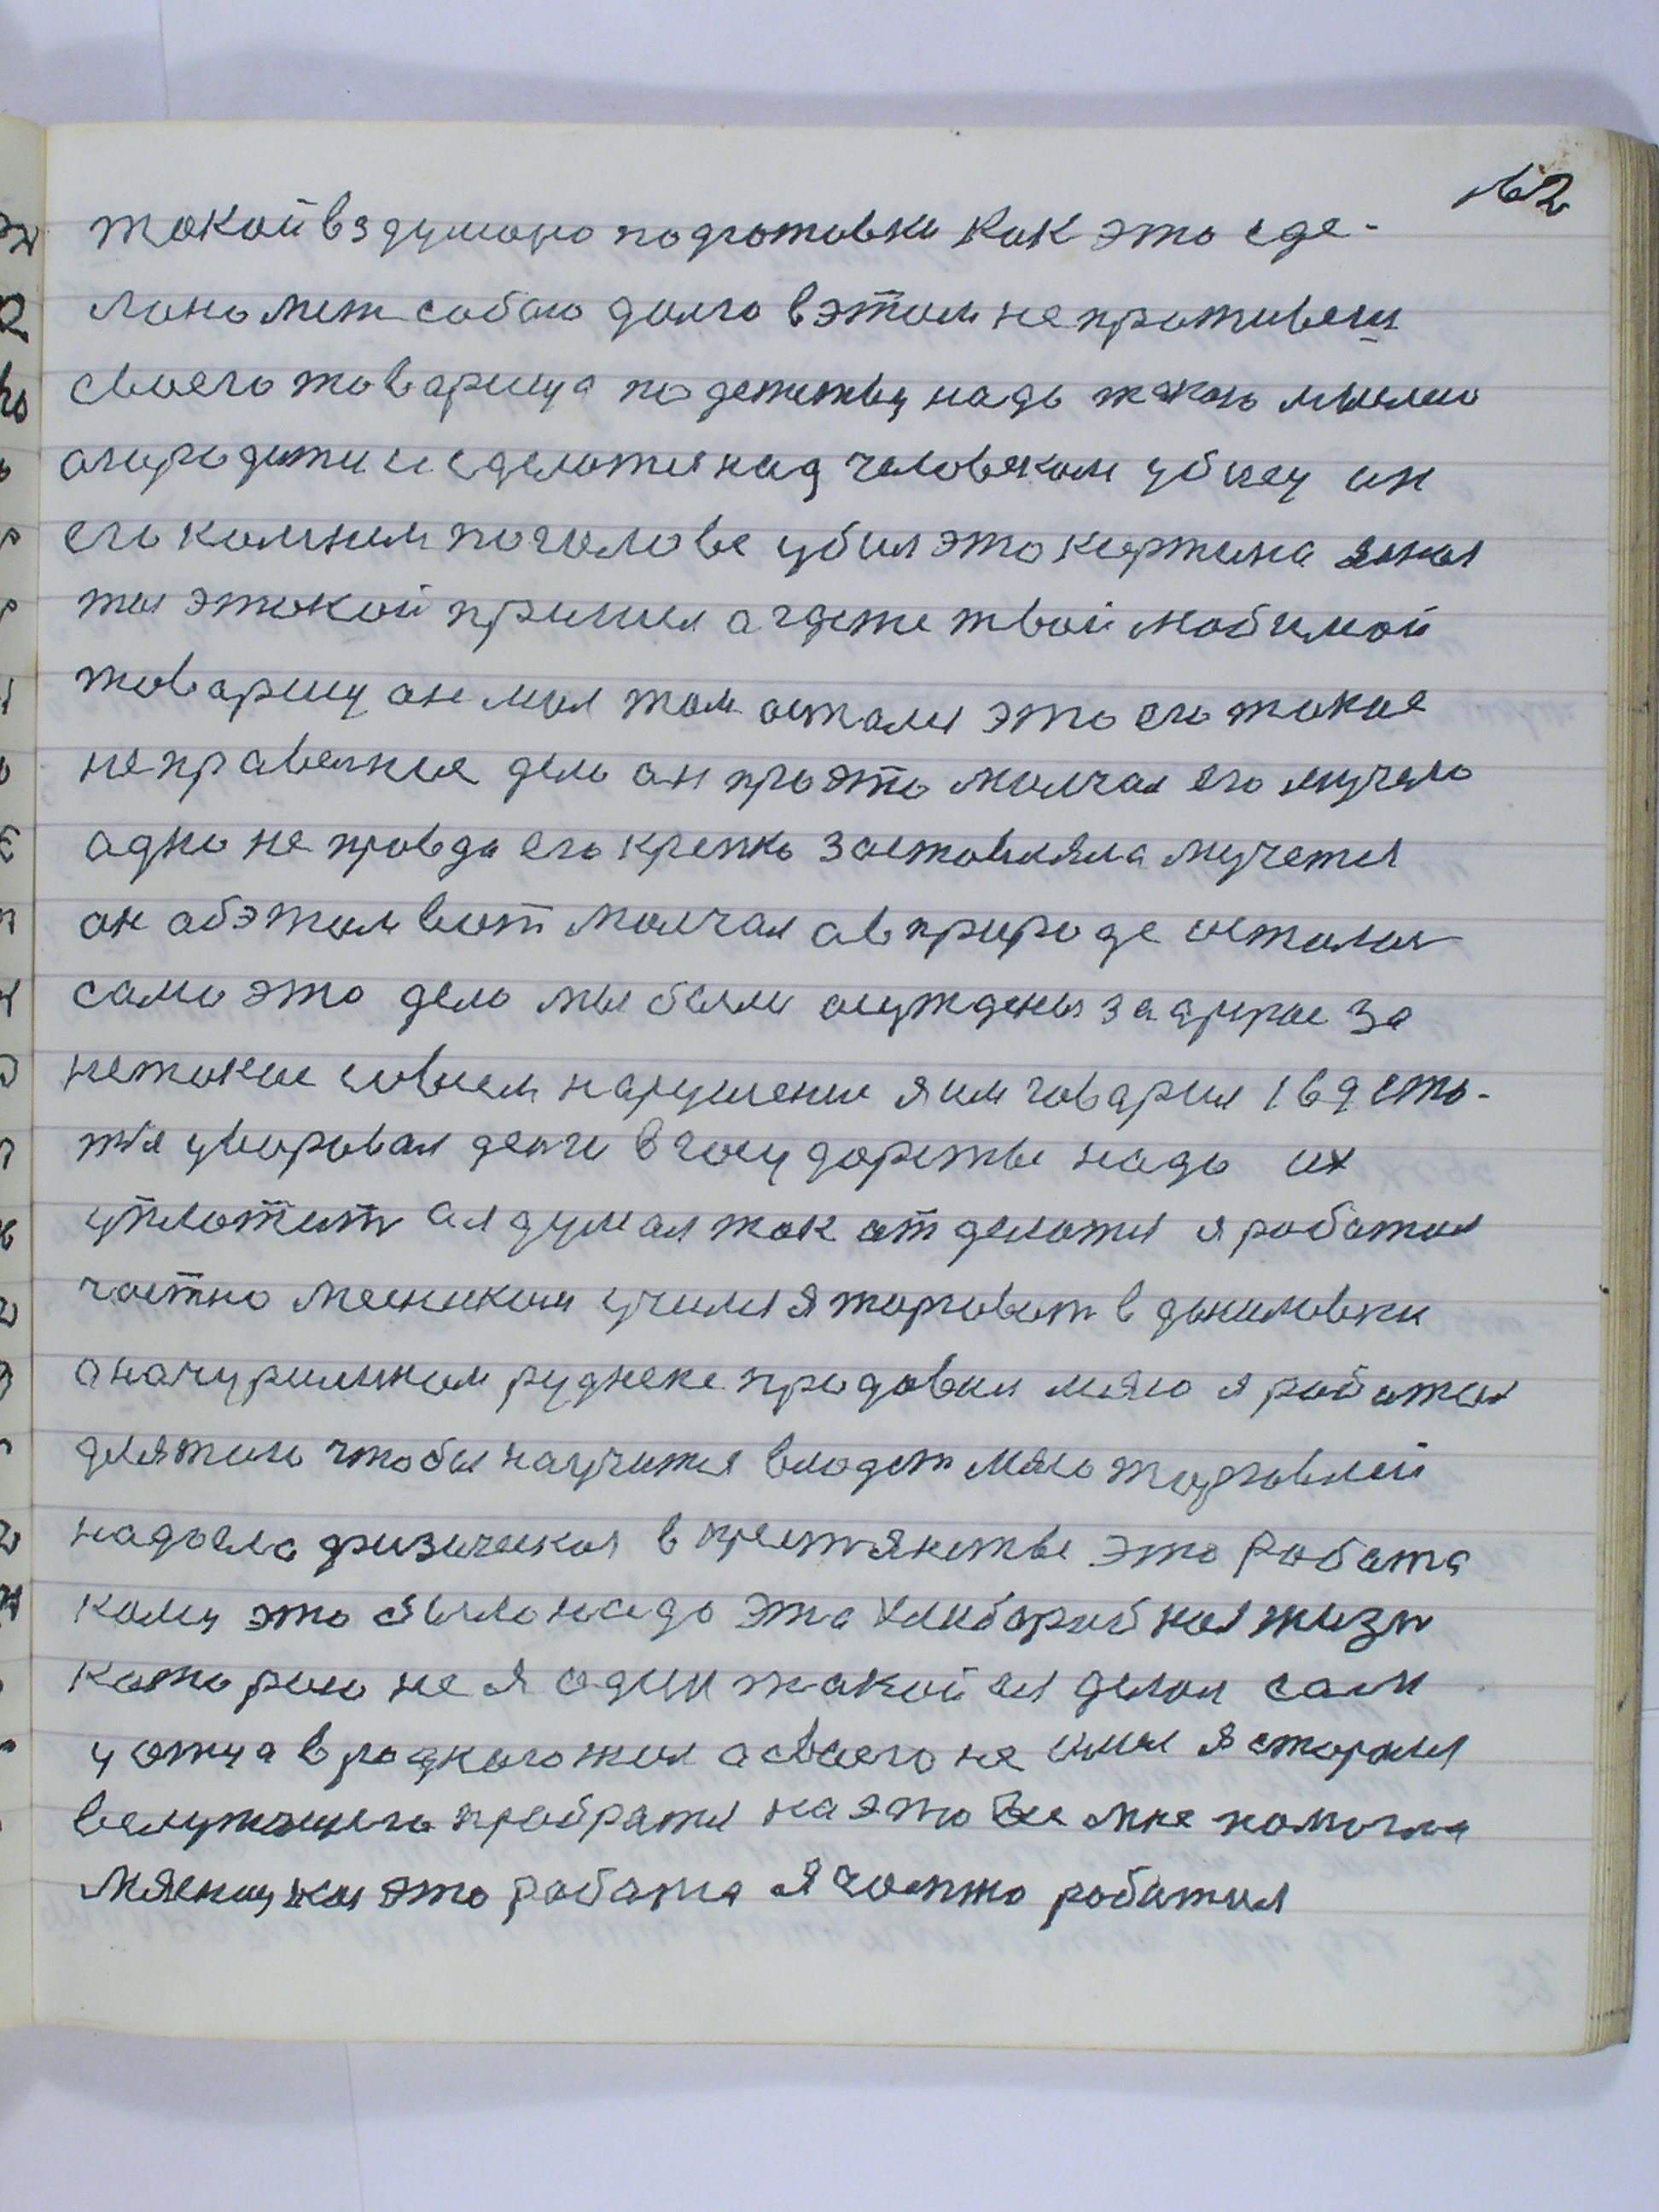 №2
такой вздумано подготовки Как это сде-
лано меж собою долго в этом непротивели
своего товарища по детству надо такою мыслию
агародити и сделатся над человеком убицу ик
его камням поголове убил это картина
ты этокой пришел агдеже твой любимой
товарищ он мол там осталс это его такое
неправелное дело он проэто молчал его мучело
адно не правда его крепко застовляла мучется
он абэтом вот молчал авприроде осталос
само это дело мы были осуждены за другое за
нетокое совсем нарушение яим говарил 169 сто-
тя уваровал денги вгосударстве надо их
уплотит ая думал так отделатся я работал
частно мясником учился я торговат в даниловки
а начурилиным руднеке продовал мясо я работал
длятого чтобы научится владет мясо торговлей
надоела физическоя в крестянстве это Работа
кому это было надо эта хлебаробноя жизн
которою не я один такой ея делал сам
уотца вродкого жил асваего не имел я старалс
веслужащего пробратся на это все мне помогла
мясницкоя это работа я частно работал